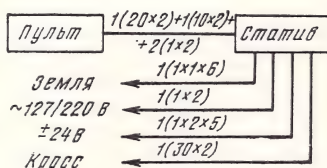 Пульт
1(20×2)+1(10×2)+
+2(1×2)
Статив
Земля
1(1×1×6)
~127/220 В
1(1×2)
±24В
1(1×2×5)
Кросс
1(30×2)